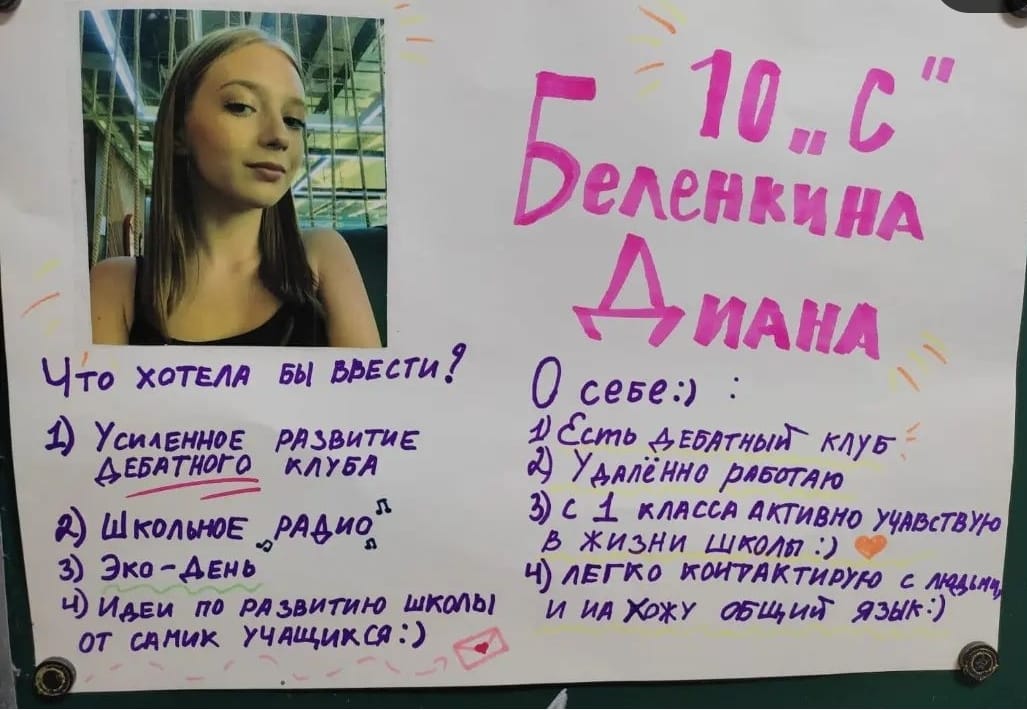 10 „С"
Беленкина
Диана
Что хотела бы ввести?
1) Усиленное развитие
дебатного клуба
2) Школьное радио
3) Эко-день
4) Идеи по развитию школы
от самик учащикся:)
О себе:) :
1) Есть дебатный клуб
2) Удалённо работаю
3) с 1 класса активно учавствую
в жизни школы:)
4) легко контактирую с людьми,
и на хожу общий язык:)